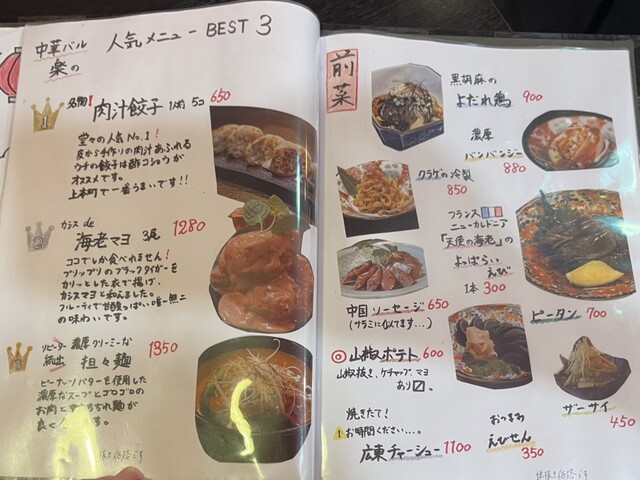 中華バル
楽の
人気メニュー BEST 3
1
名物! 肉汁餃子 1人前 5コ 650
堂々の人気No.1!
皮から手作りの肉汁あふれる
ウチの餃子は酢コショウが
オススメです。
上本町で一番うまいです!!
2
カシス de
海老マヨ 3尾 1280
ココでしか食べれません!
プリップリのブラックタイガーを
カリッとした衣で揚げ、
カシスマヨと和えました。
フルーティで甘酸っぱい唯一無二
の味わいです。
3
リピーター 濃厚クリーミーな
続出 担々麺 1350
ピーナッツバターを使用した
濃厚なスープとゴロゴロの
お肉と
前菜
黒胡麻の
よだれ鶏 900
濃厚
バンバンジー
880
クラゲの冷製
850
フランス
ニューカレドニア
「天使の海老」の
よっぱらい
えび
1本 300
中国ソーセージ 650
(サラミに似てます...)
ピータン 700
◎山椒ポテト 600
山椒抜き、ケチャップ、マヨ
あり〼。
ザーサイ
450
焼きたて!
お時間ください...。
広東チャーシュー 1100
おつまみ
えびせん
350